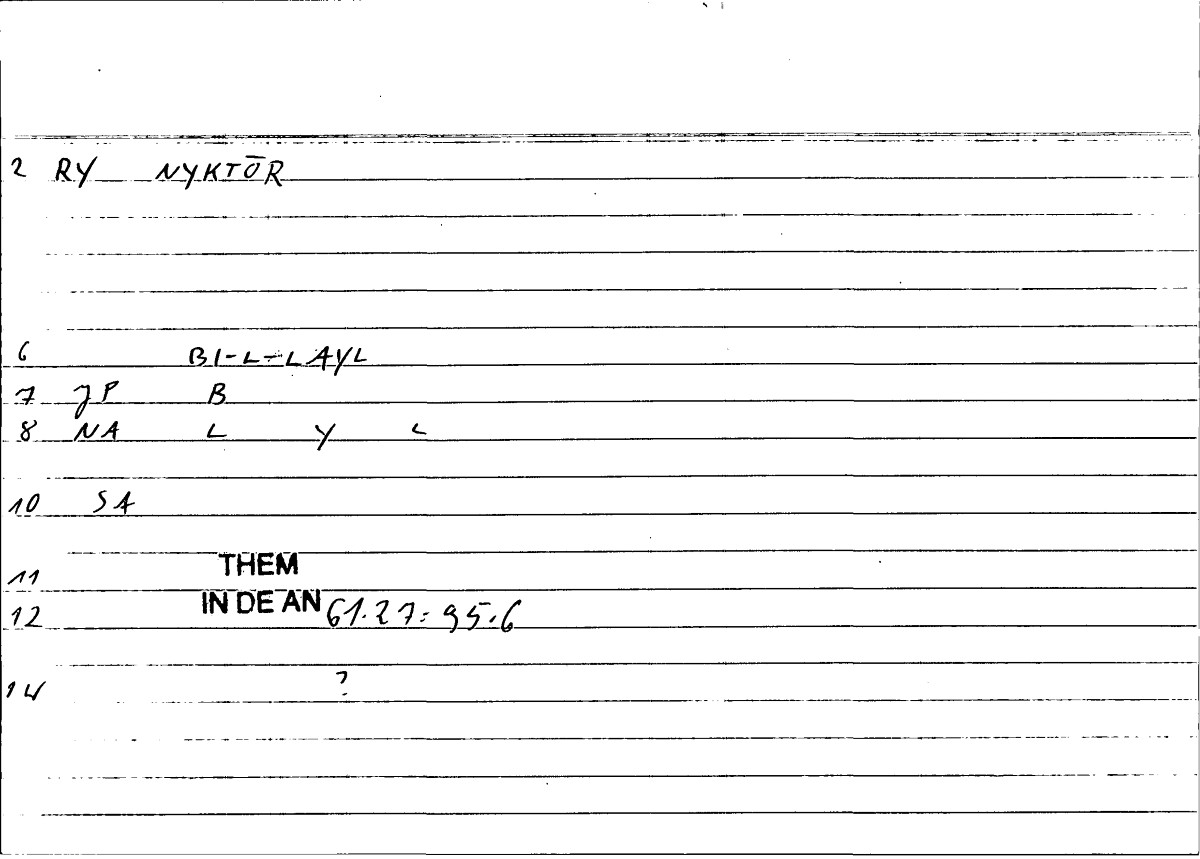 2 RY NYKTŌR
6 BI-L-LAYL
7 JP B
8 NA L Y L
10 SA
11 THEM
12 IN DE AN 61.27:95.6
14 ?